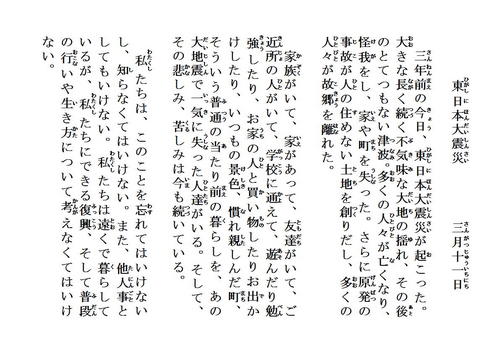 東日本大震災　三月十一日
三年前の今日、東日本大震災が起こった。
大きな長く続く不気味な大地の揺れ、その後
のとてつもない津波。多くの人々が亡くなり、
怪我をし、家や町を失った。さらに原発の
事故が人の住めない土地を創りだし、多くの
人々が故郷を離れた。
家族がいて、家があって、友達がいて、ご
近所の人がいて、学校に通えて、遊んだり勉
強したり、お家の人と買い物したりお出か
けしたり、いつもの景色、慣れ親しんだ町、
そういう普通の当たり前の暮らしを、あの
大地震で一気に失った人達がいる。そして、
その悲しみ、苦しみは今も続いている。
私たちは、このことを忘れてはいけない
し、知らなくてはいけない。また、他人事と
してもいけない。私たちは遠くで暮らして
いるが、私たちにできる復興、そして普段
の行いや生き方について考えなくてはいけ
ない。